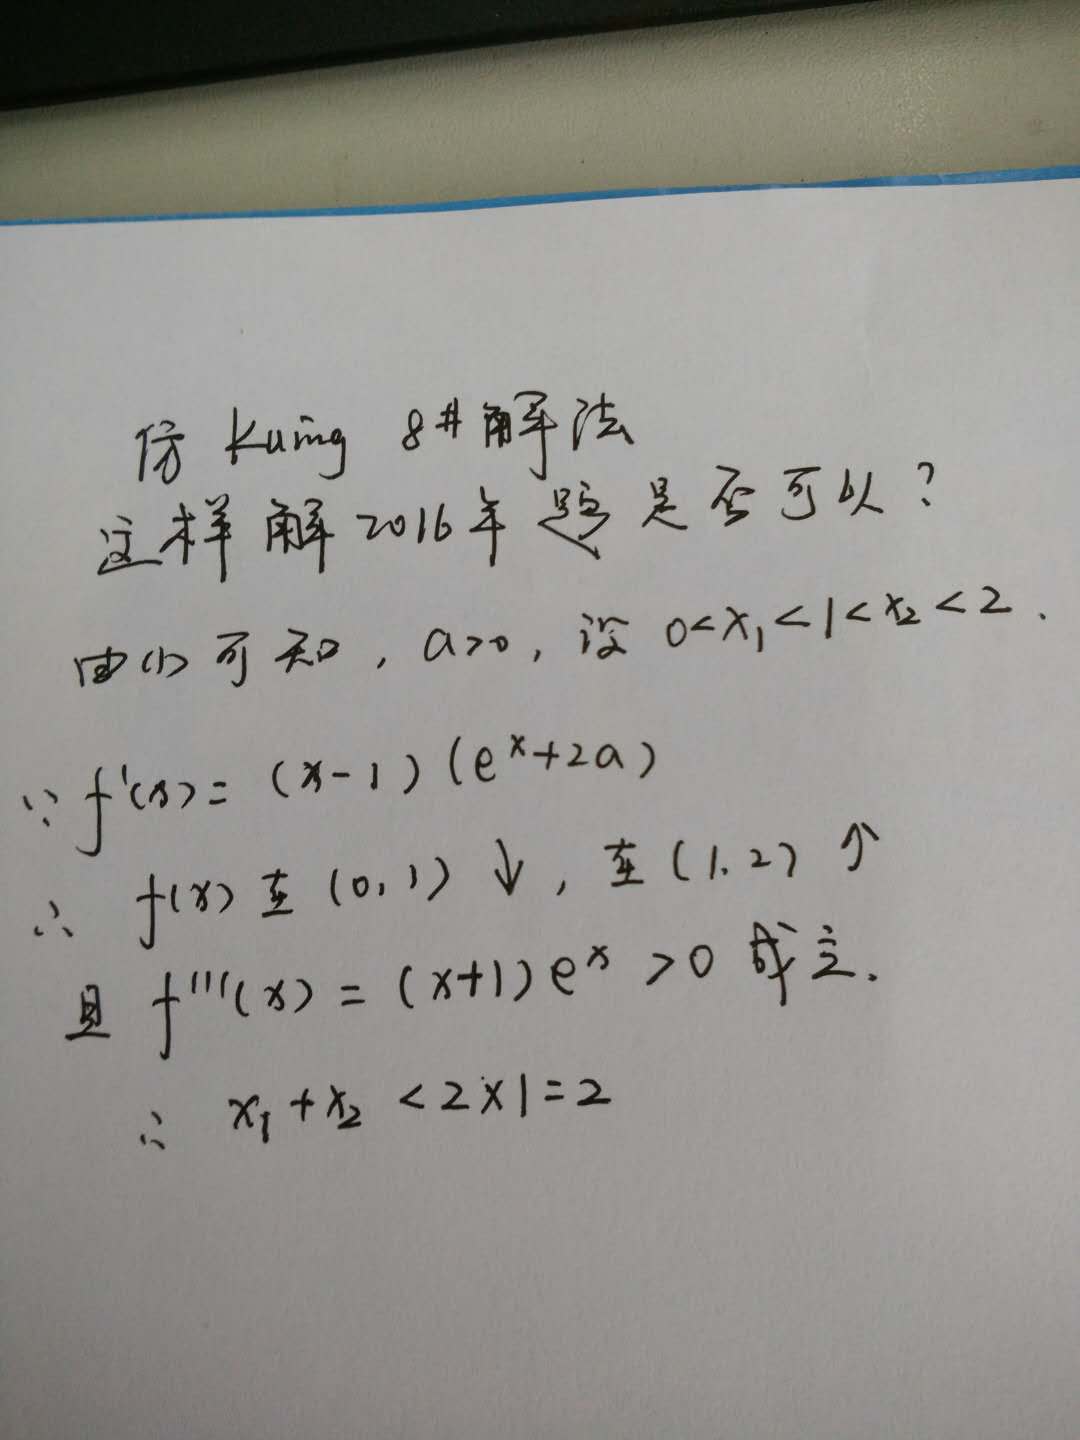 仿 Kuing 8#解法
这样解2016年题是否可以?
由(1)可知, a>0, 设 0<x₁<1<x₂<2.
∵ f'(x)= (x-1)(eˣ+2a)
∴ f(x)在(0,1)↓, 在(1,2)↑
且 f'''(x)=(x+1)eˣ>0 成立.
∴ x₁+x₂<2×1=2